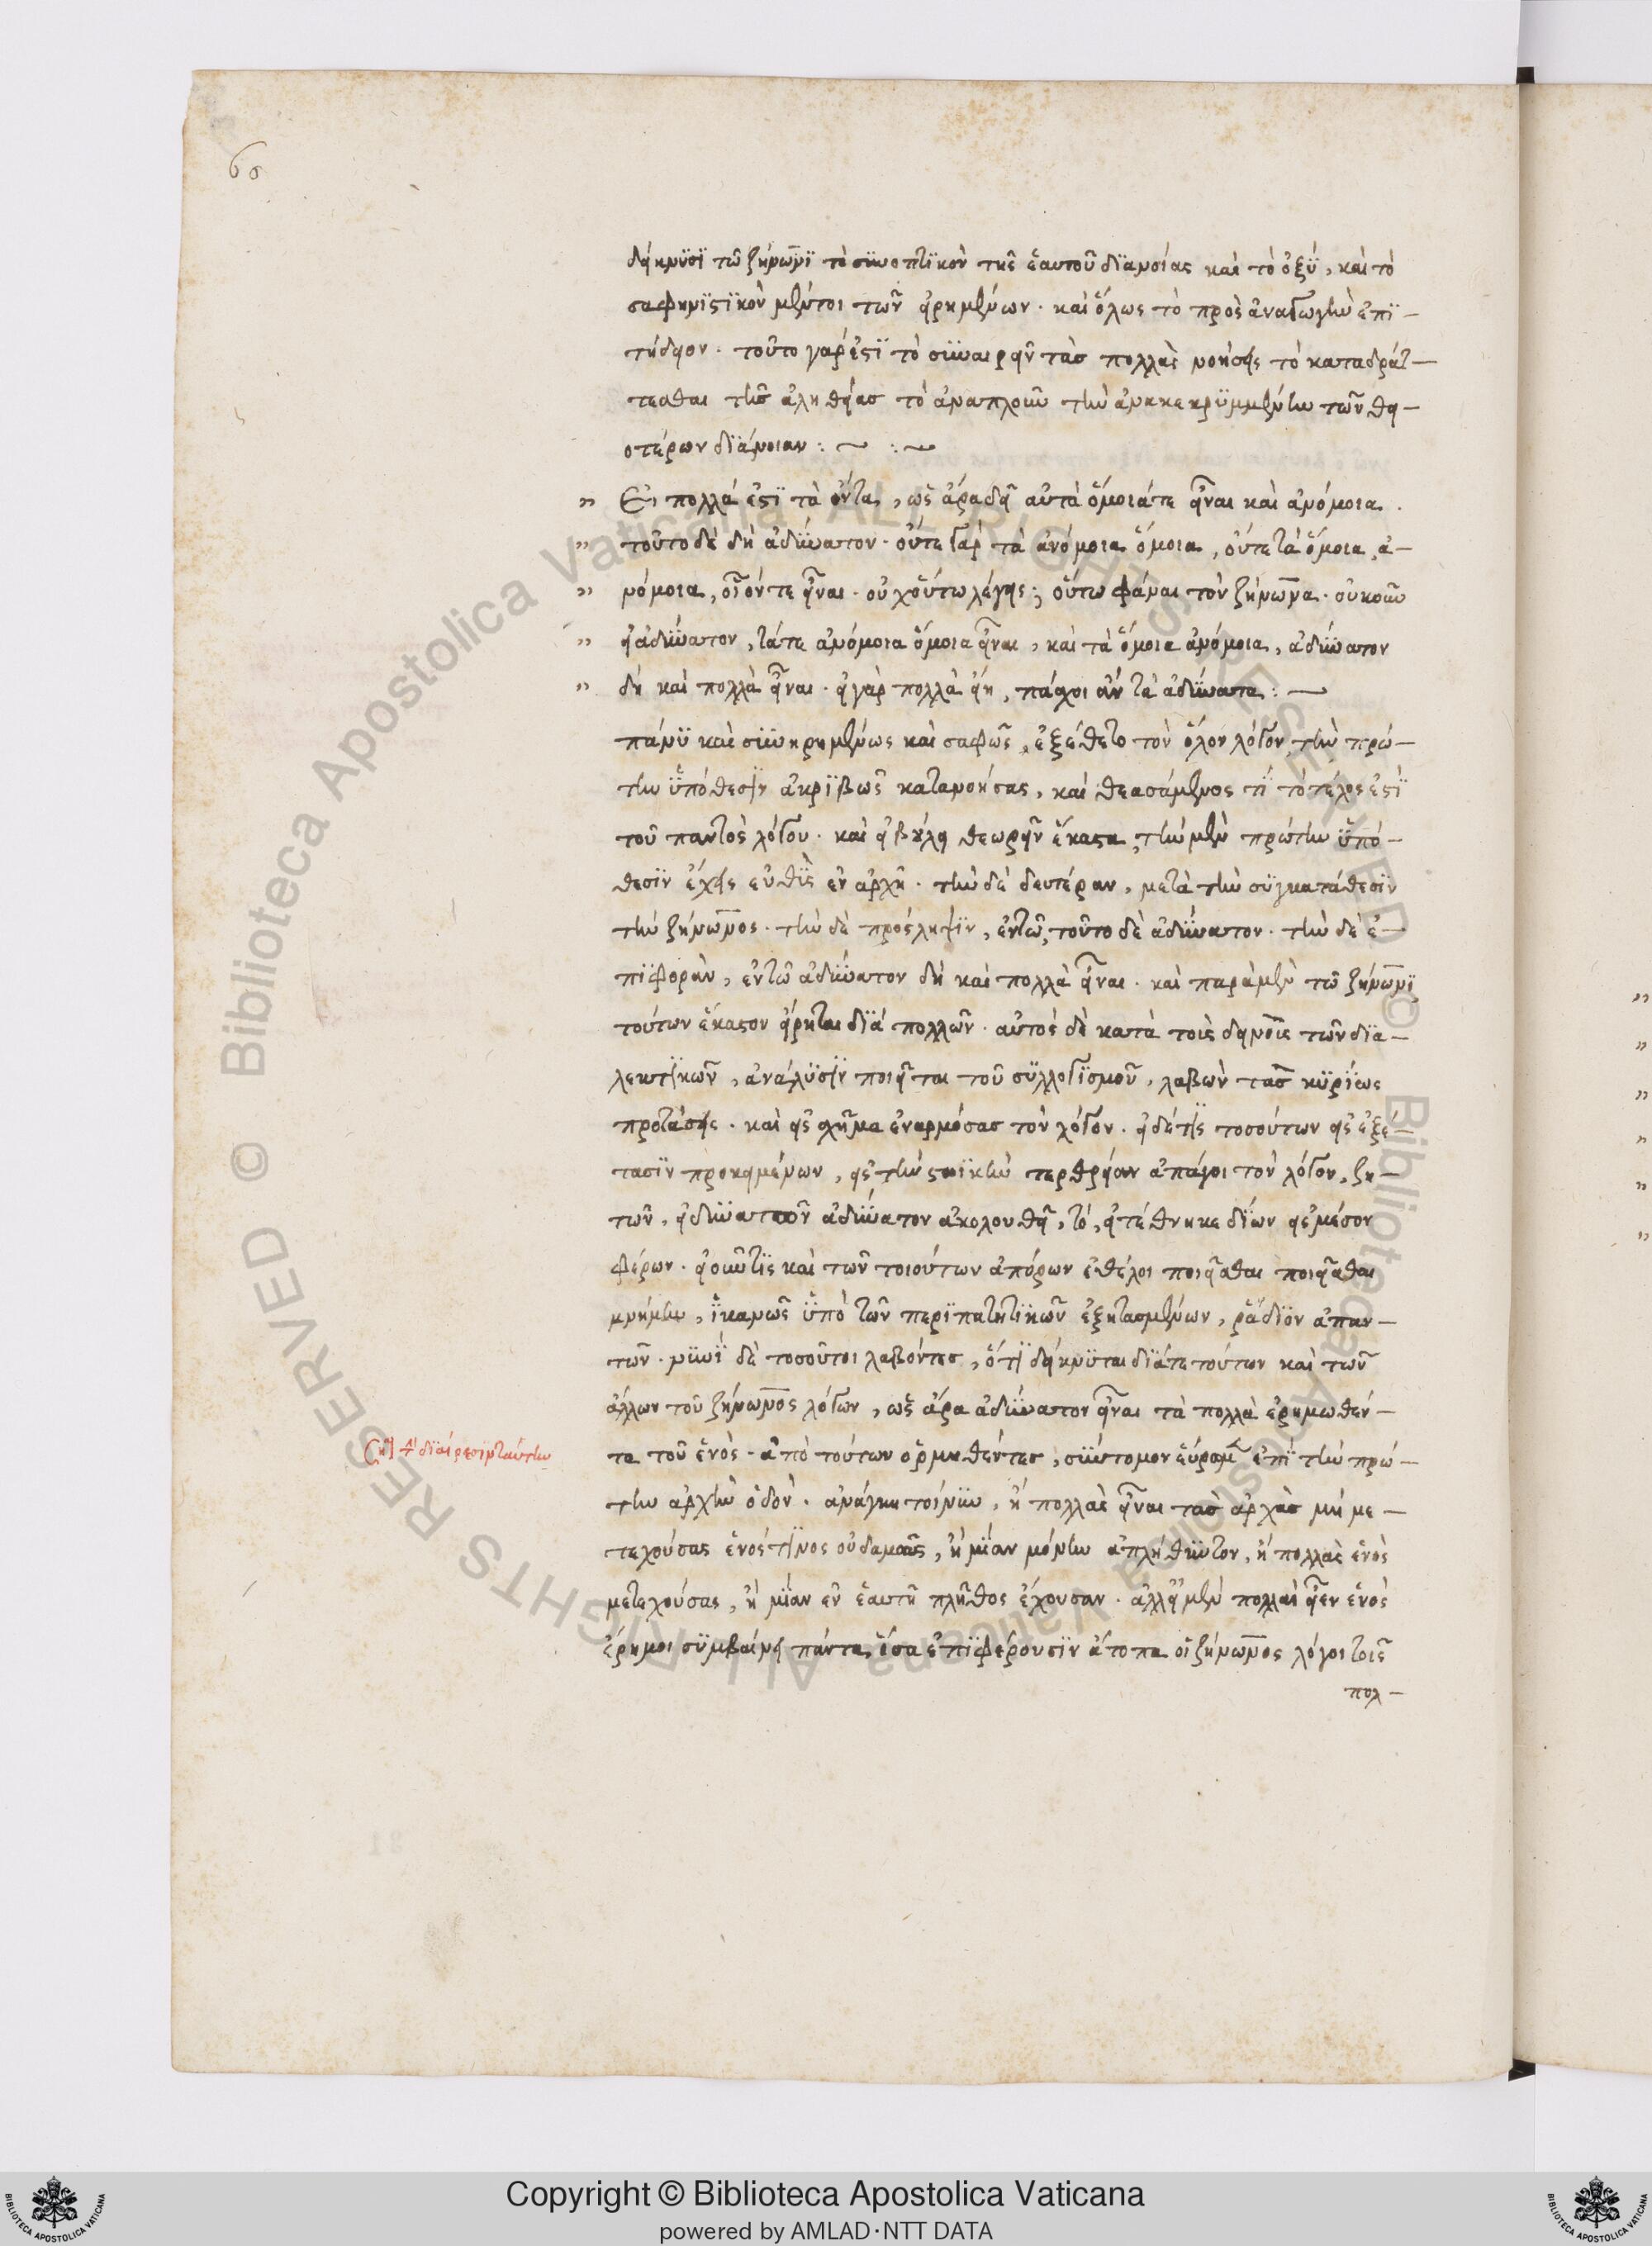 60
δείκνυσι τῷ ζήνωνι τὸ συνοπτικὸν τῆς ἑαυτοῦ διανοίας καὶ τὸ ὀξὺ, καὶ τὸ
σαφηνιστικὸν μέντοι τῶν εἰρημένων. καὶ ὅλως τὸ πρὸς ἀναγωγὴν ἐπι-
τήδειον. τοῦτο γάρ ἐστι τὸ συναιρεῖν τὰς πολλὰς νοήσεις τὸ καταδράτ-
τεσθαι τῆς ἀληθείας τὸ ἀναπλοῦν τὴν ἀνακεκρυμμένην τῶν θει-
οτέρων διάνοιαν: ~ :~
" Εἰ πολλά ἐστι τὰ ὄντα, ὡς ἄρα δεῖ αὐτὰ ὅμοιά τε εἶναι καὶ ἀνόμοια.
" τοῦτο δὲ δὴ ἀδύνατον. οὔτε γὰρ τὰ ἀνόμοια ὅμοια, οὔτε τὰ ὅμοια ἀ-
" νόμοια, οἷόν τε εἶναι. οὐχ οὕτω λέγεις; οὕτω φάναι τὸν ζήνωνα. οὐκοῦν
" εἰ ἀδύνατον, τά τε ἀνόμοια ὅμοια εἶναι, καὶ τὰ ὅμοια ἀνόμοια, ἀδύνατον
" δὴ καὶ πολλὰ εἶναι. εἰ γὰρ πολλὰ εἴη, πάσχοι ἂν τὰ ἀδύνατα: —
πάνυ καὶ συνῃρημένως καὶ σαφῶς, ἐξέθετο τὸν ὅλον λόγον, τὴν πρώ-
την ὑπόθεσιν ἀκριβῶς κατανοήσας, καὶ θεασάμενος τί τὸ τέλος ἐστὶ
τοῦ παντὸς λόγου. καὶ εἰ βούλει θεωρεῖν ἕκαστα, τὴν μὲν πρώτην ὑπό-
θεσιν ἔχεις εὐθὺς ἐν ἀρχῇ. τὴν δὲ δευτέραν, μετὰ τὴν συγκατάθεσιν
τὴν ζήνωνος. τὴν δὲ πρόσληψιν, ἐν τῷ, τοῦτο δὲ ἀδύνατον. τὴν δὲ ἐ-
πιφορὰν, ἐν τῷ ἀδύνατον δὴ καὶ πολλὰ εἶναι. καὶ παρὰ μὲν τῷ ζήνωνι
τούτων ἕκαστον εἴρηται διὰ πολλῶν. αὐτὸς δὲ κατὰ τοὺς δεινοὺς τῶν δια-
λεκτικῶν, ἀνάλυσιν ποιεῖται τοῦ συλλογισμοῦ, λαβὼν τὰς κυρίως
προτάσεις. καὶ εἰς σχῆμα ἐναρμόσας τὸν λόγον. εἰ δέ τις τοσούτων εἰς ἐξέ-
τασιν προκειμένων, εἰς τὴν στωικὴν τερθρείαν ἀπάγοι τὸν λόγον, ζη-
τῶν, εἰ δυνατῷ ἀδύνατον ἀκολουθεῖ, τό, εἰ τέθνηκε δίων εἰς μέσον
φέρων. εἰ οὖν τις καὶ τῶν τοιούτων ἀπόρων ἐθέλοι ποιεῖσθαι ποιεῖσθαι
μνήμην, ἱκανῶς ὑπὸ τῶν περιπατητικῶν ἐξητασμένων, ῥᾴδιον ἀπαν-
τᾶν. νυνὶ δὲ τοσοῦτοι λαβόντες, ὅτι δείκνυται διά τε τούτων καὶ τῶν
ἄλλων τοῦ ζήνωνος λόγων, ὡς ἄρα ἀδύνατον εἶναι τὰ πολλὰ ἐρημωθέν-
τα τοῦ ἑνὸς. ἀπὸ τούτων ὁρμηθέντες, σύντομον εὕρομεν ἐπὶ τὴν πρώ-
την ἀρχὴν ὁδὸν. ἀνάγκη τοίνυν, ἢ πολλὰς εἶναι τὰς ἀρχὰς μὴ με-
τεχούσας ἑνός τινος οὐδαμῶς, ἢ μίαν μόνην ἀπλήθυντον, ἢ πολλὰς ἑνὸς
μετεχούσας, ἢ μίαν ἐν ἑαυτῇ πλῆθος ἔχουσαν. ἀλλ' εἰ μὲν πολλαὶ εἶεν ἑνὸς
ἔρημοι συμβαίνει πάντα, ὅσα ἐπιφέρουσιν ἄτοπα οἱ ζήνωνος λόγοι τοῖς
πολ-
Copyright © Biblioteca Apostolica Vaticana
powered by AMLAD·NTT DATA